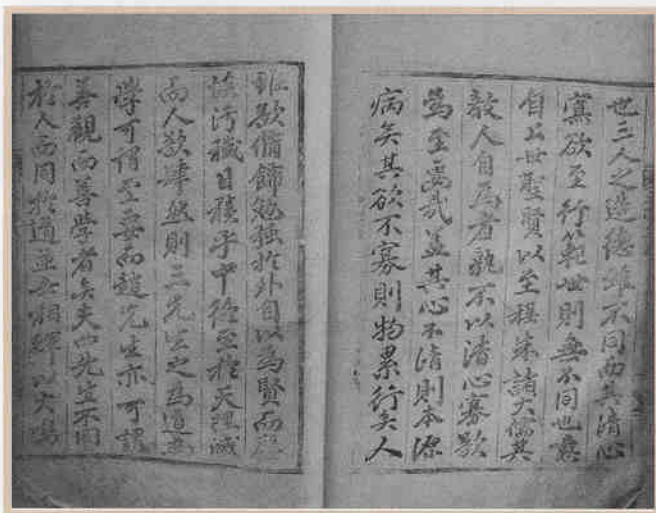 世三人之造德雖不同而其清心
寡欲至行以範世則無不同也竊
自上世聖賢以至程朱諸大儒其
教人自爲者孰不以清心寡欲
爲至焉哉蓋其心不清則本源
病矣其欲不寡則物累行矣人
雖欲脩飾勉強於外自以為賢而
污穢日積乎中終至於天理滅
而人欲肆然則三先生之為道為
學可謂至要而趙先生亦可謂
善觀而善學者矣夫四先生不同
於人而同於道並世相輝以大鳴